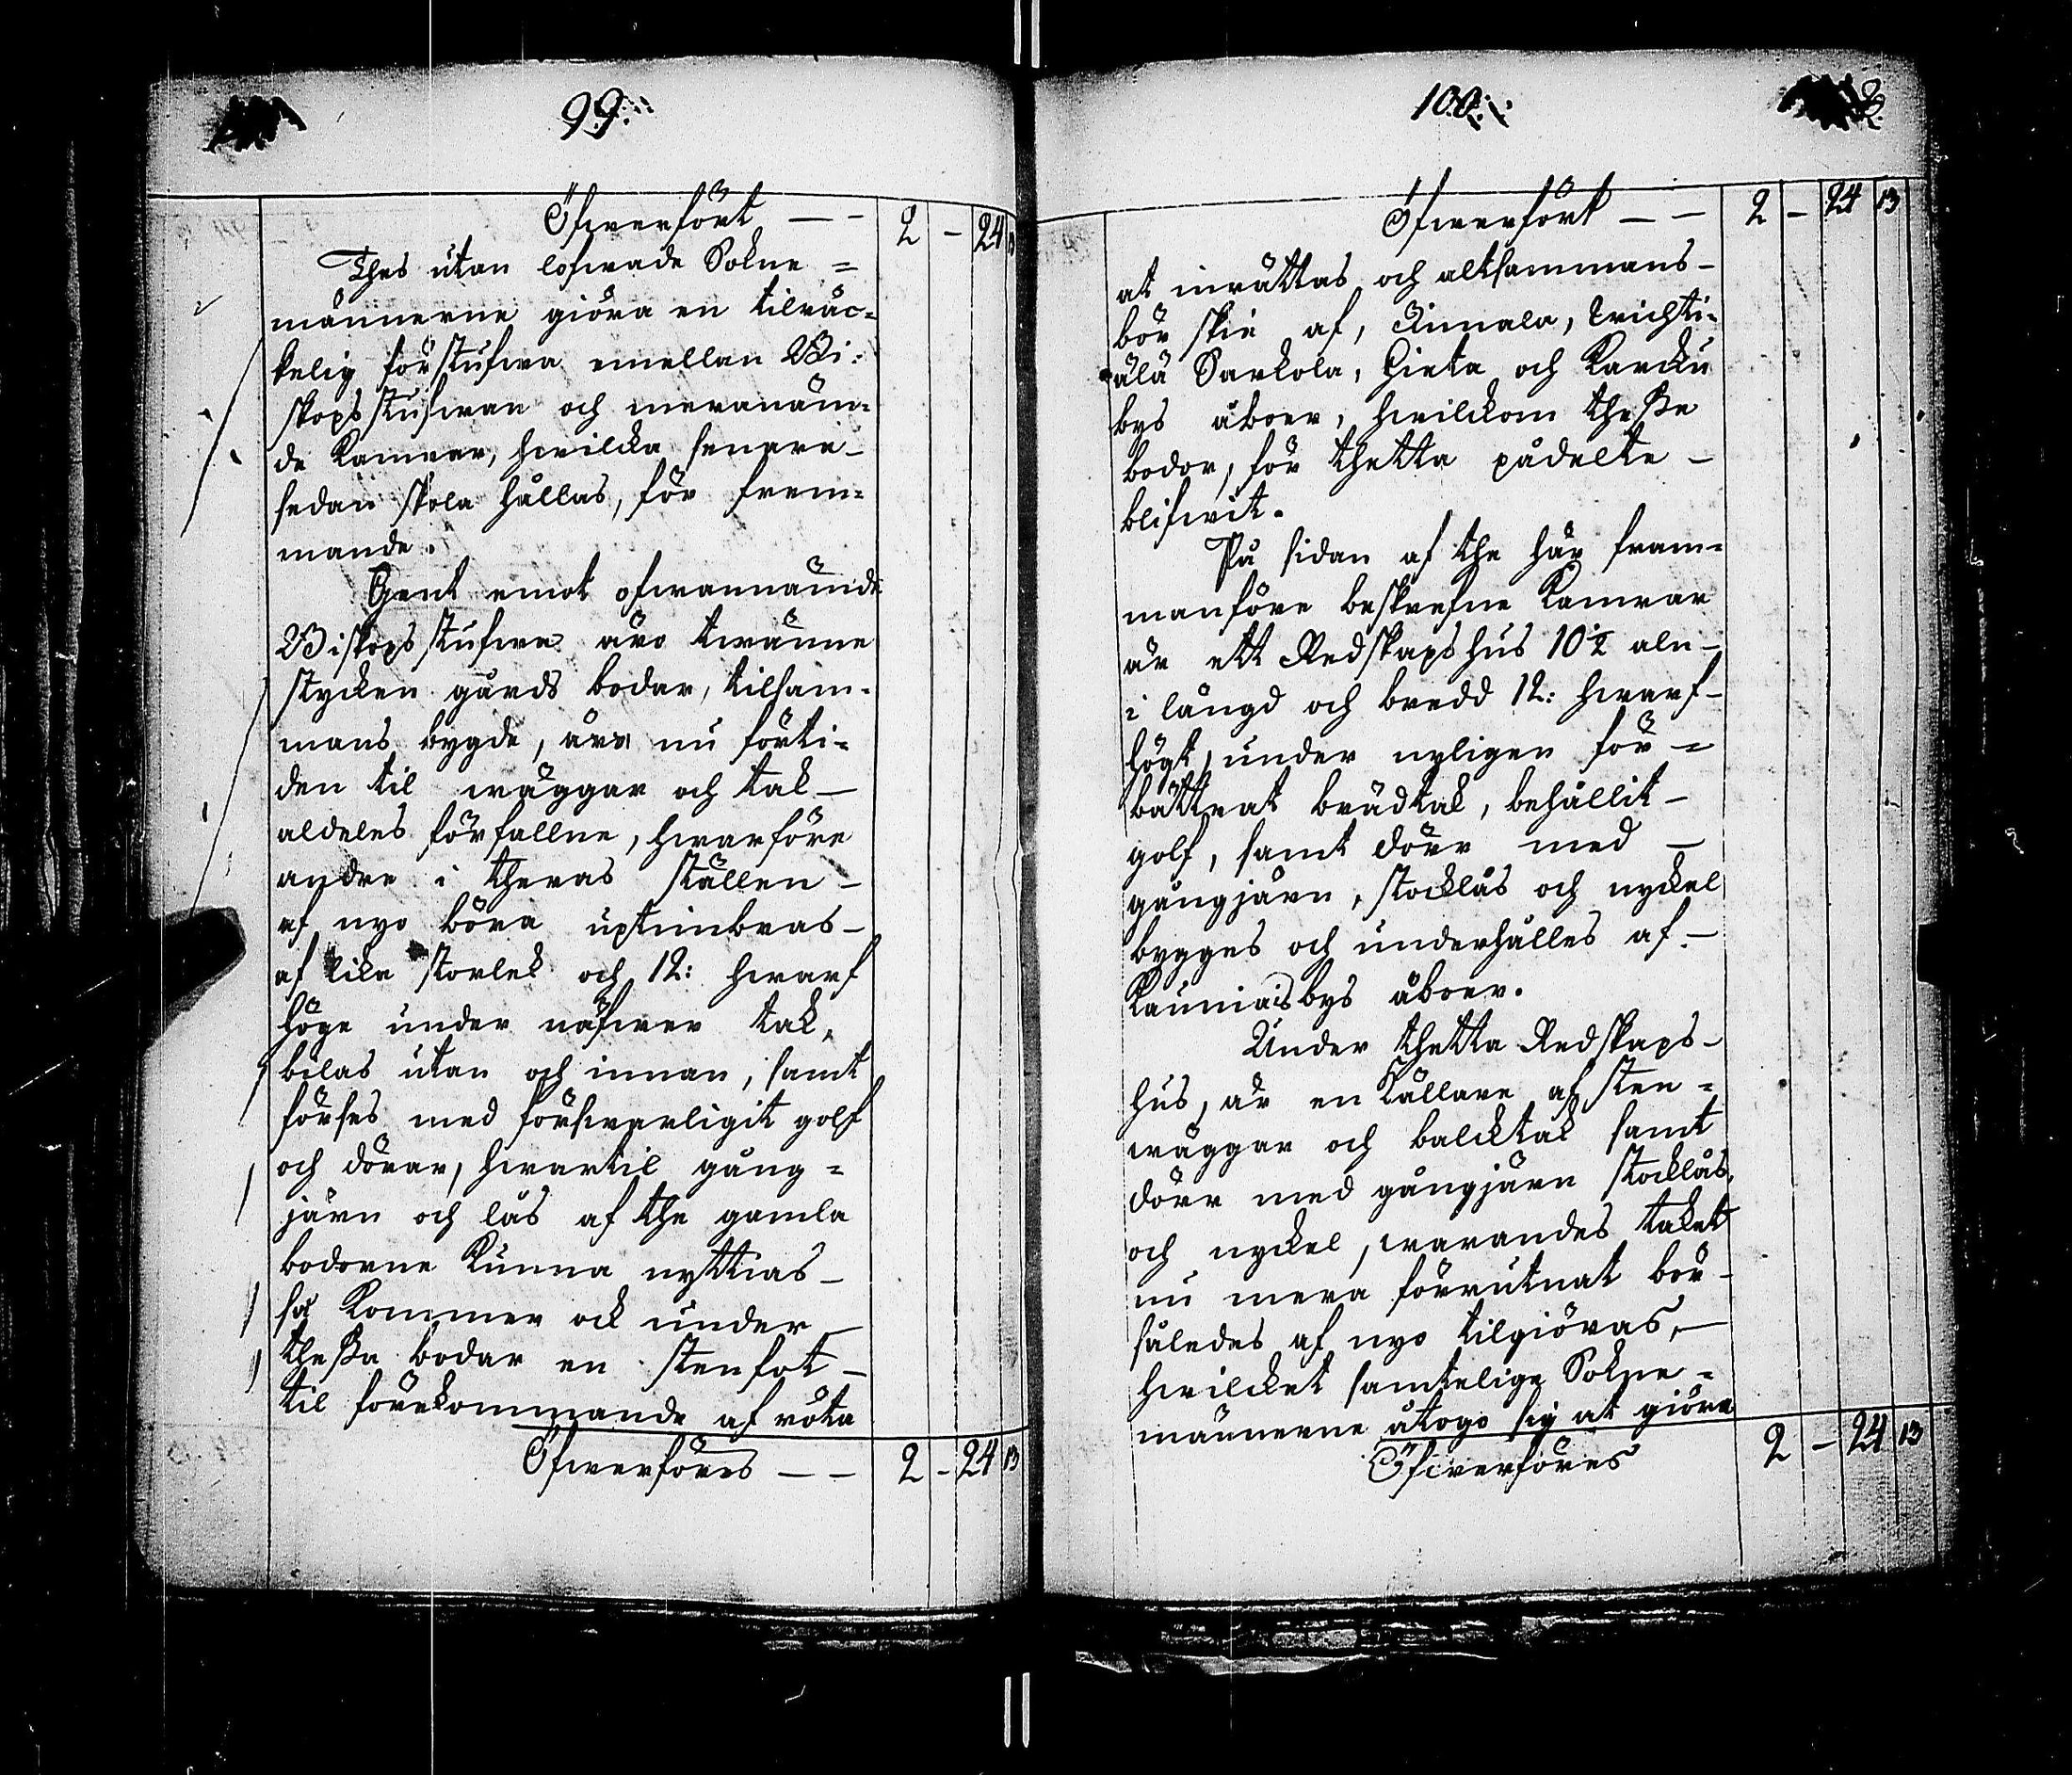 99.
Öfwerfört — — 2 — 24 13
Thes utan lofwade Sokne=
männerne giöra en tilräc=
kelig förstufwa emellan Bi=
skops stufwan och meranäm=
de Kamrar, hwilcka senare
sedan skola hållas, för frem=
mande.
Gent emot ofwannämde
Biskops stufwa äro twänne
stycken gårds bodar, tilsam=
mans bygde, äro nu förti=
den til wäggar och tak
aldeles förfallne, hwarföre
andre i theras ställen
af nyo böra uptimbras
af lika storlek och 12: hwarf
höge under näfwer tak,
bilas utan och innan, samt
förses med försvarligit golf
och dörar, hwartil gång=
järn och lås af the gamla
bodorne kunna nyttias
så kommer ock under
theßa bodar en stenfot
til förekommande af röta
Öfwerföres — — 2 — 24 13
100.
Öfwerfört — — 2 — 24 13
at inrättas och altsammans
bör skie af, Rinnala,
älä Sarkola, Hieta och Karcku
bys åboer, hwilckom theße
bodor, för thetta pådelte
blifwit.
På sidan af the här fram=
manföre beskrefne Kamrar
är ett Redskapshus 10½ aln
i längd och bredd 12: hwarf
högt, under nyligen för=
bättrat brädtak, behållit
golf, samt dörr med
gångjärn, stocklås och nyckel
bygges och underhålles af
Kauniaisbys åboer.
Under thetta Redskaps
hus, är en Källare af sten=
wäggar och balcktak samt
dörr med gångjärn stocklås,
och nyckel, warandes taket
nu mera förrutnat bör
således af nyo tilgiöras,
hwilcket samtelige Sokne=
männerne åtogo sig at giöra
Öfwerföres 2 — 24 13